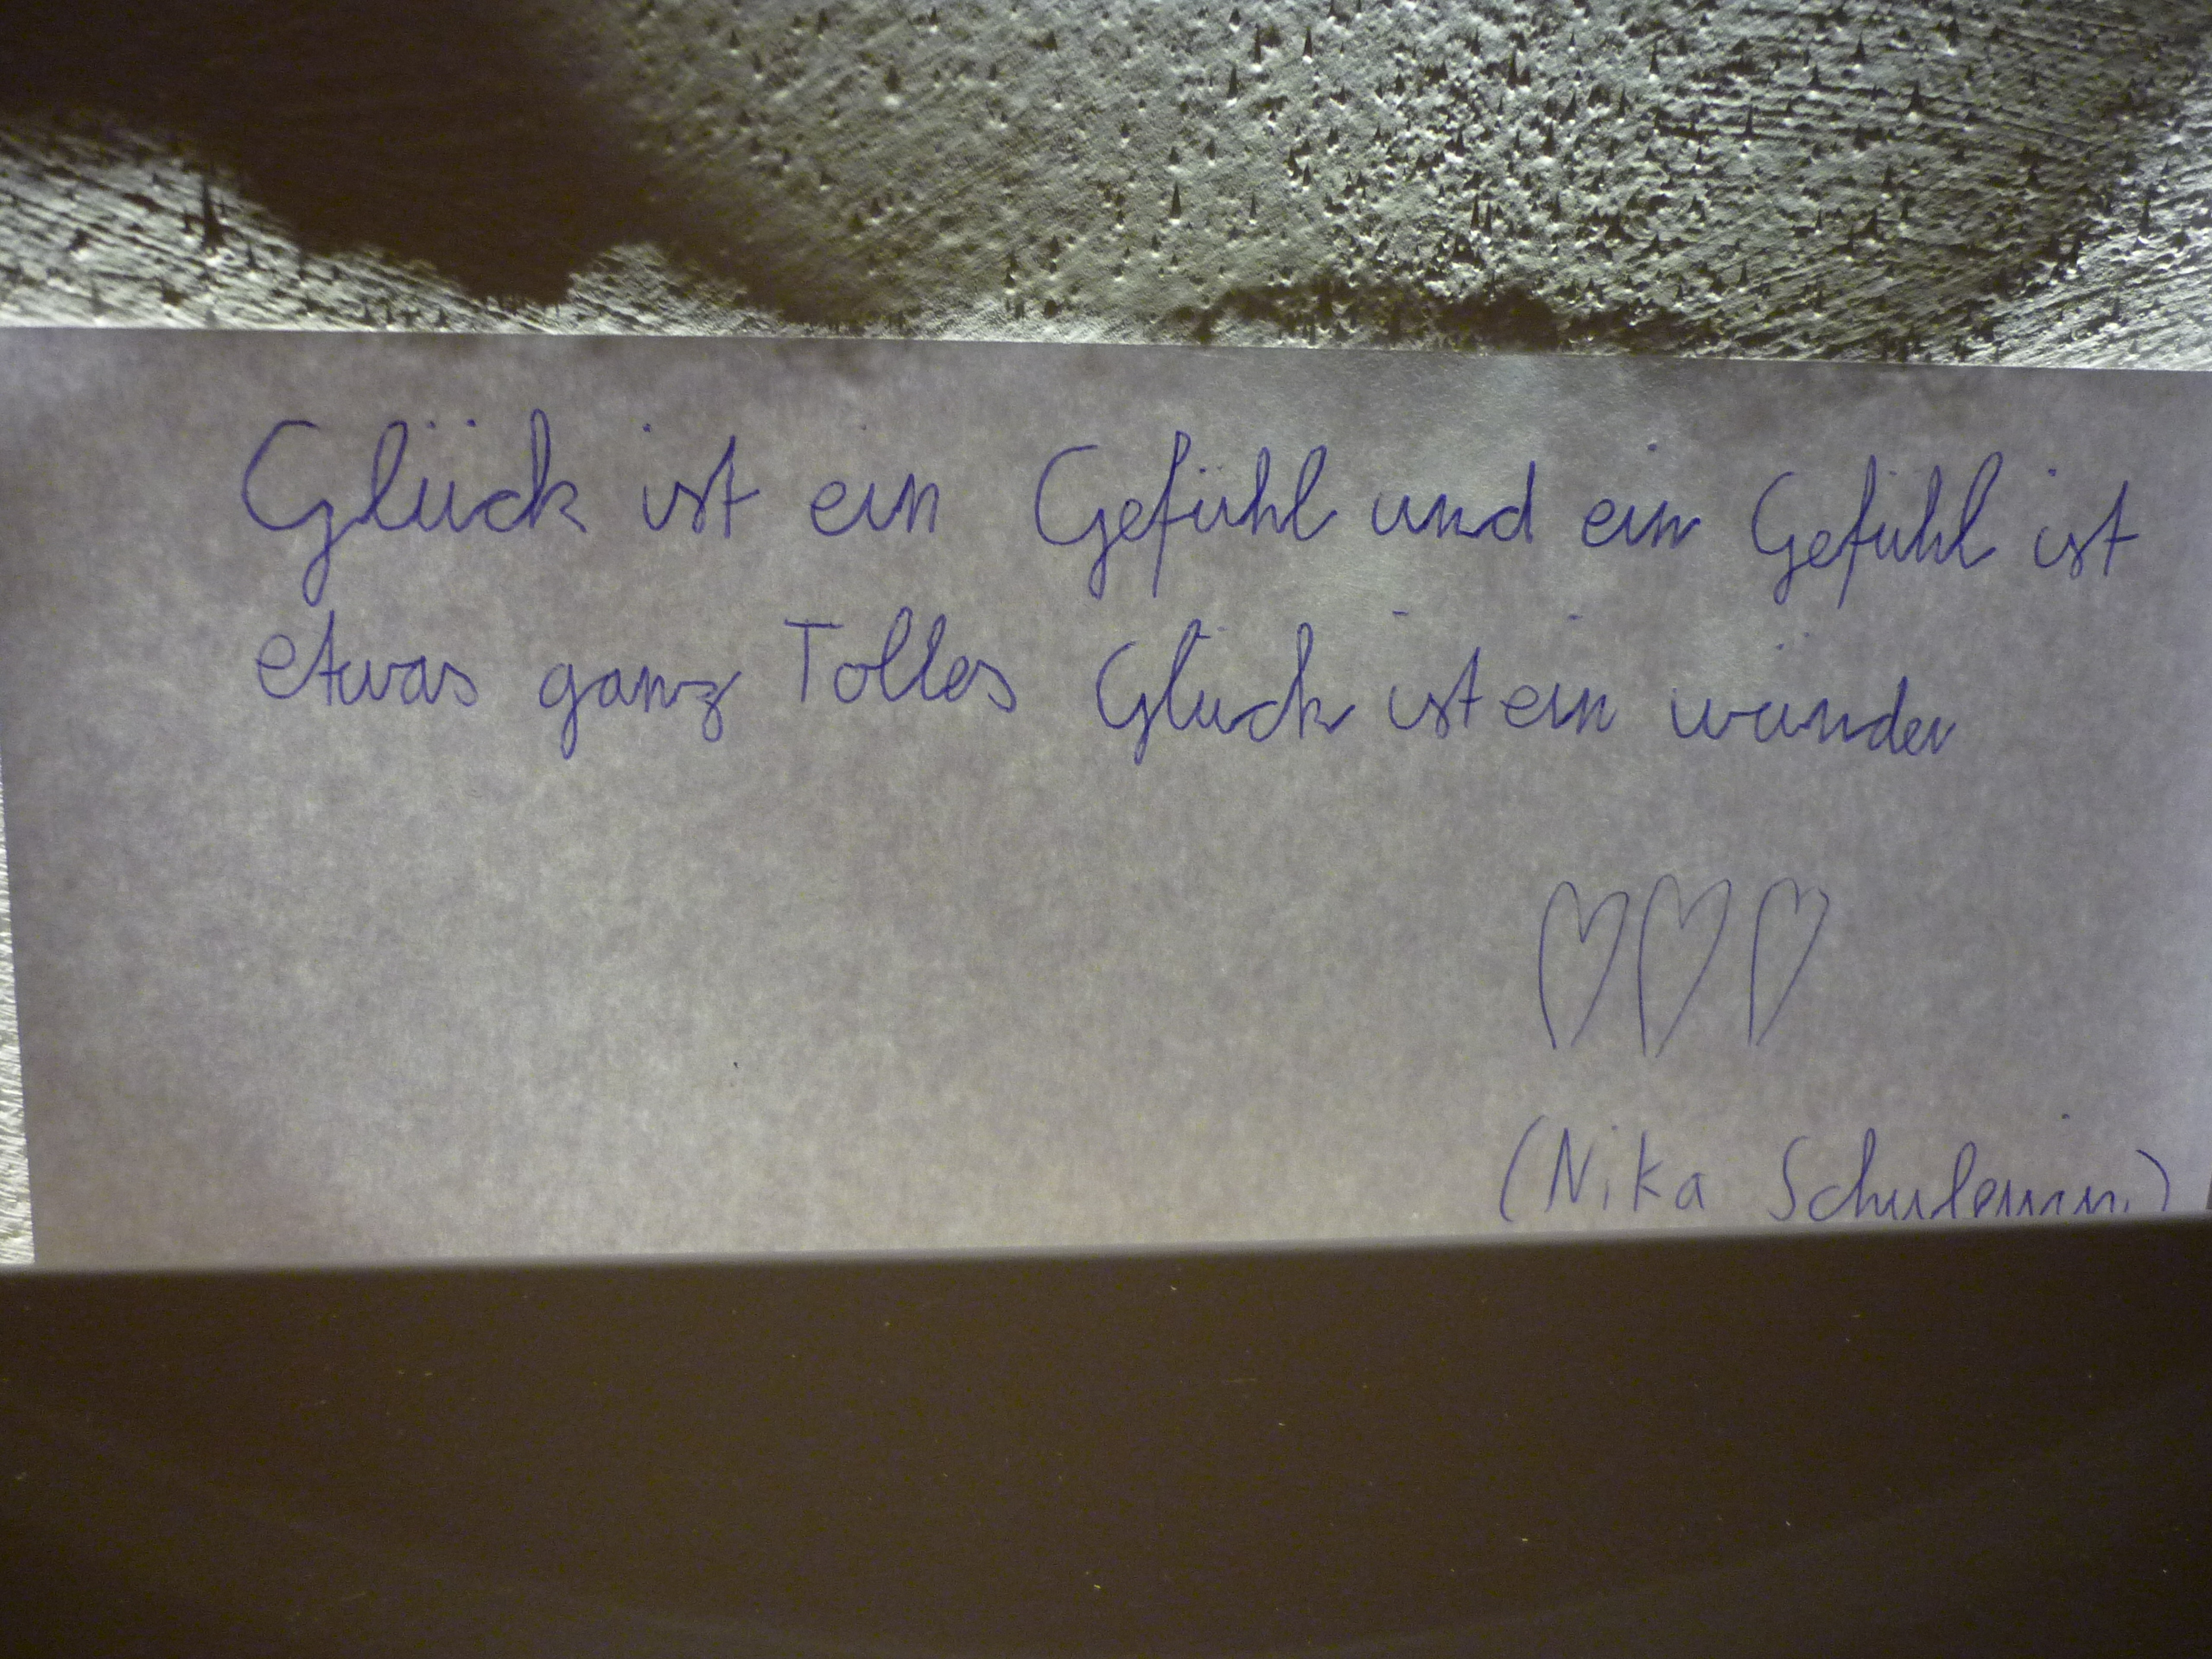 Glück ist ein Gefühl und ein Gefühl ist
etwas ganz Tolles Glück ist ein wünder
(Nika